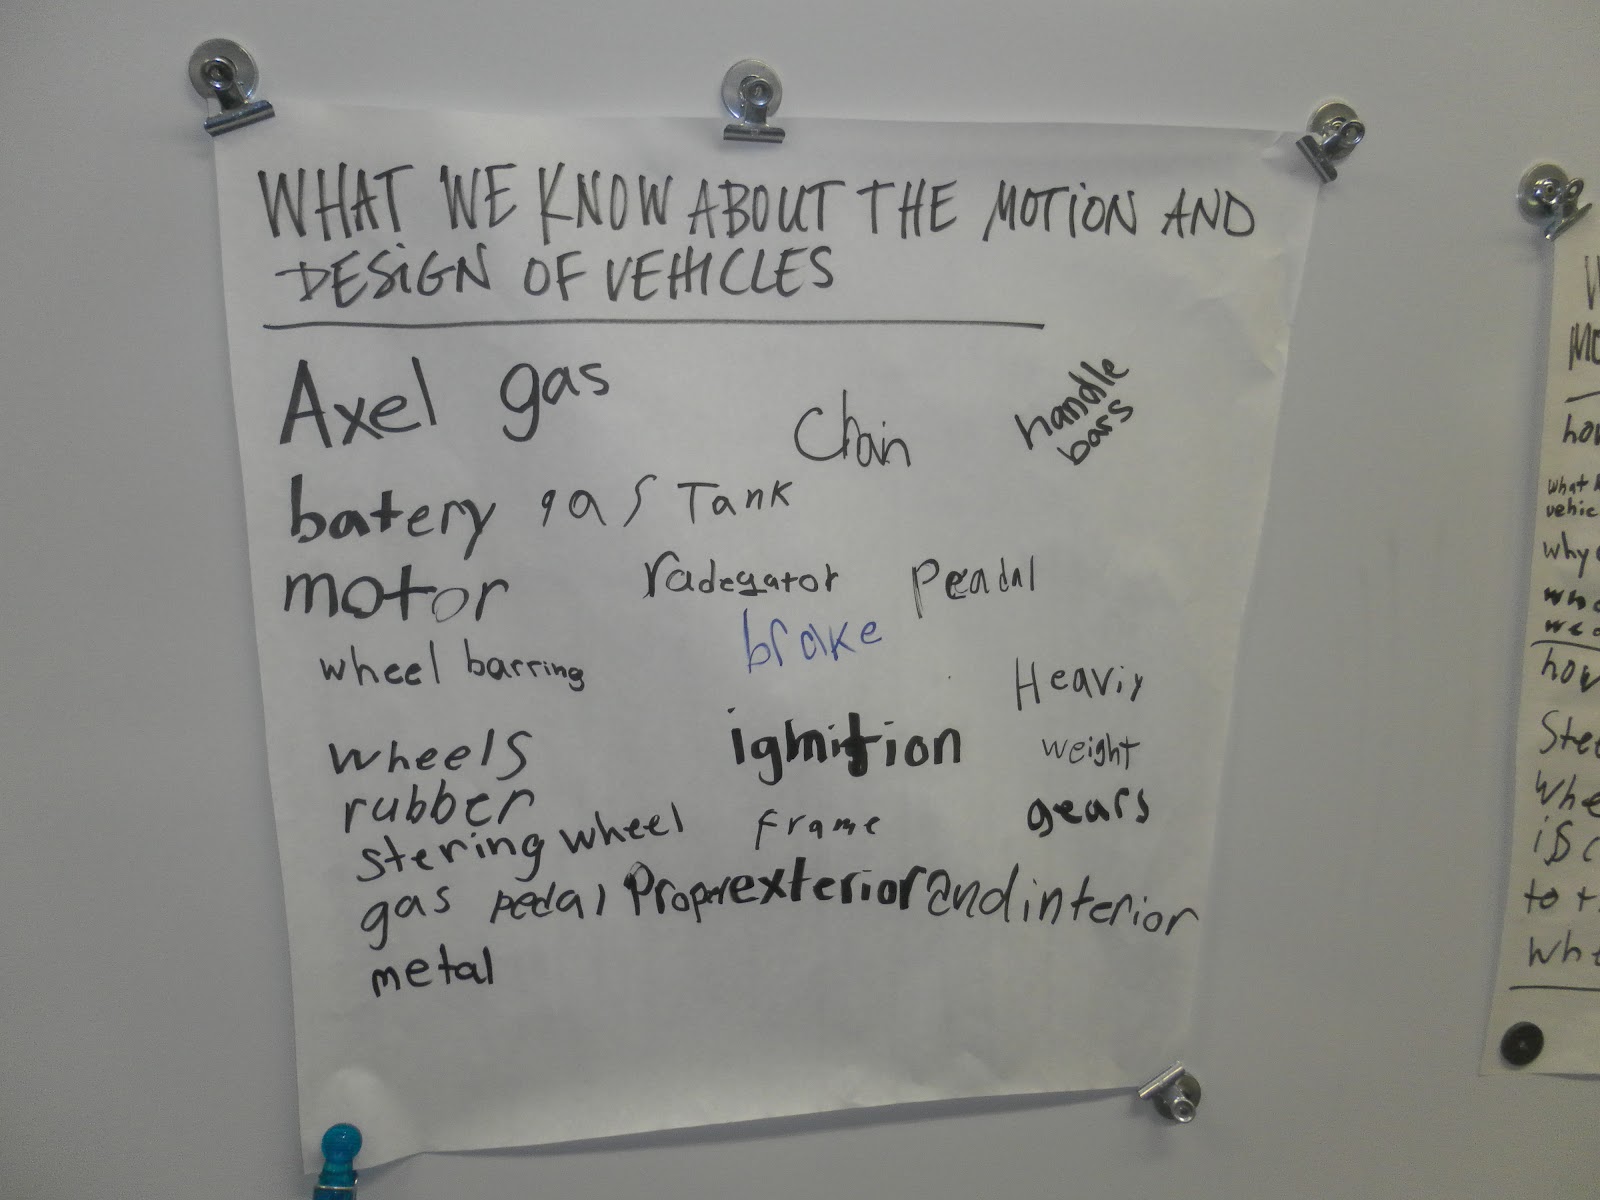 WHAT WE KNOW ABOUT THE MOTION AND
DESIGN OF VEHICLES
Axel gas
Chain
handle
bars
batery gas Tank
motor
radegator
peadal
wheel barring
brake
Heaviy
wheels
ignition
weight
rubber
stering wheel
frame
gears
gas pedal Proper exterior and interior
metal
how
what
vehic
why
how
Stee
Whe
is
to